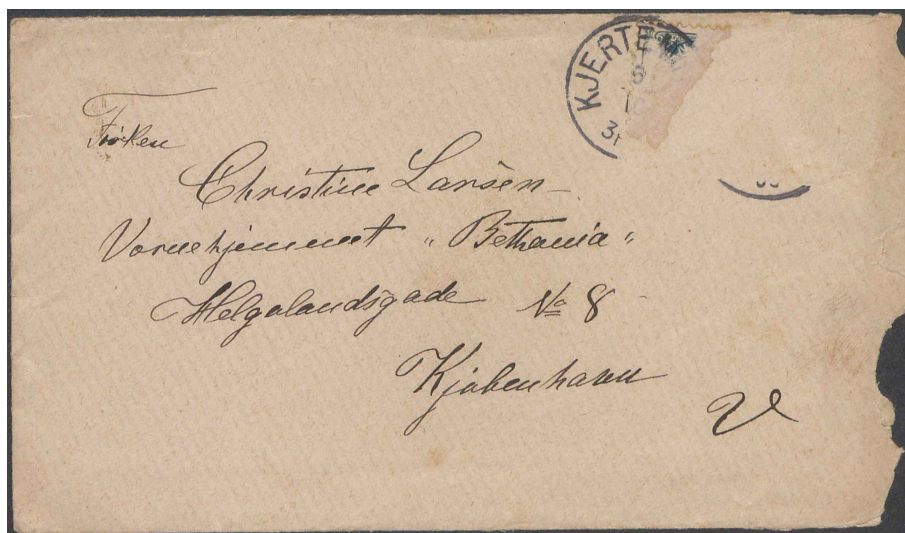 KJERTE
3
Frøken
Christine Larsen
Vornehjemmet „Bethania„
Helgolandsgade No 8
Kjøbenhavn
V